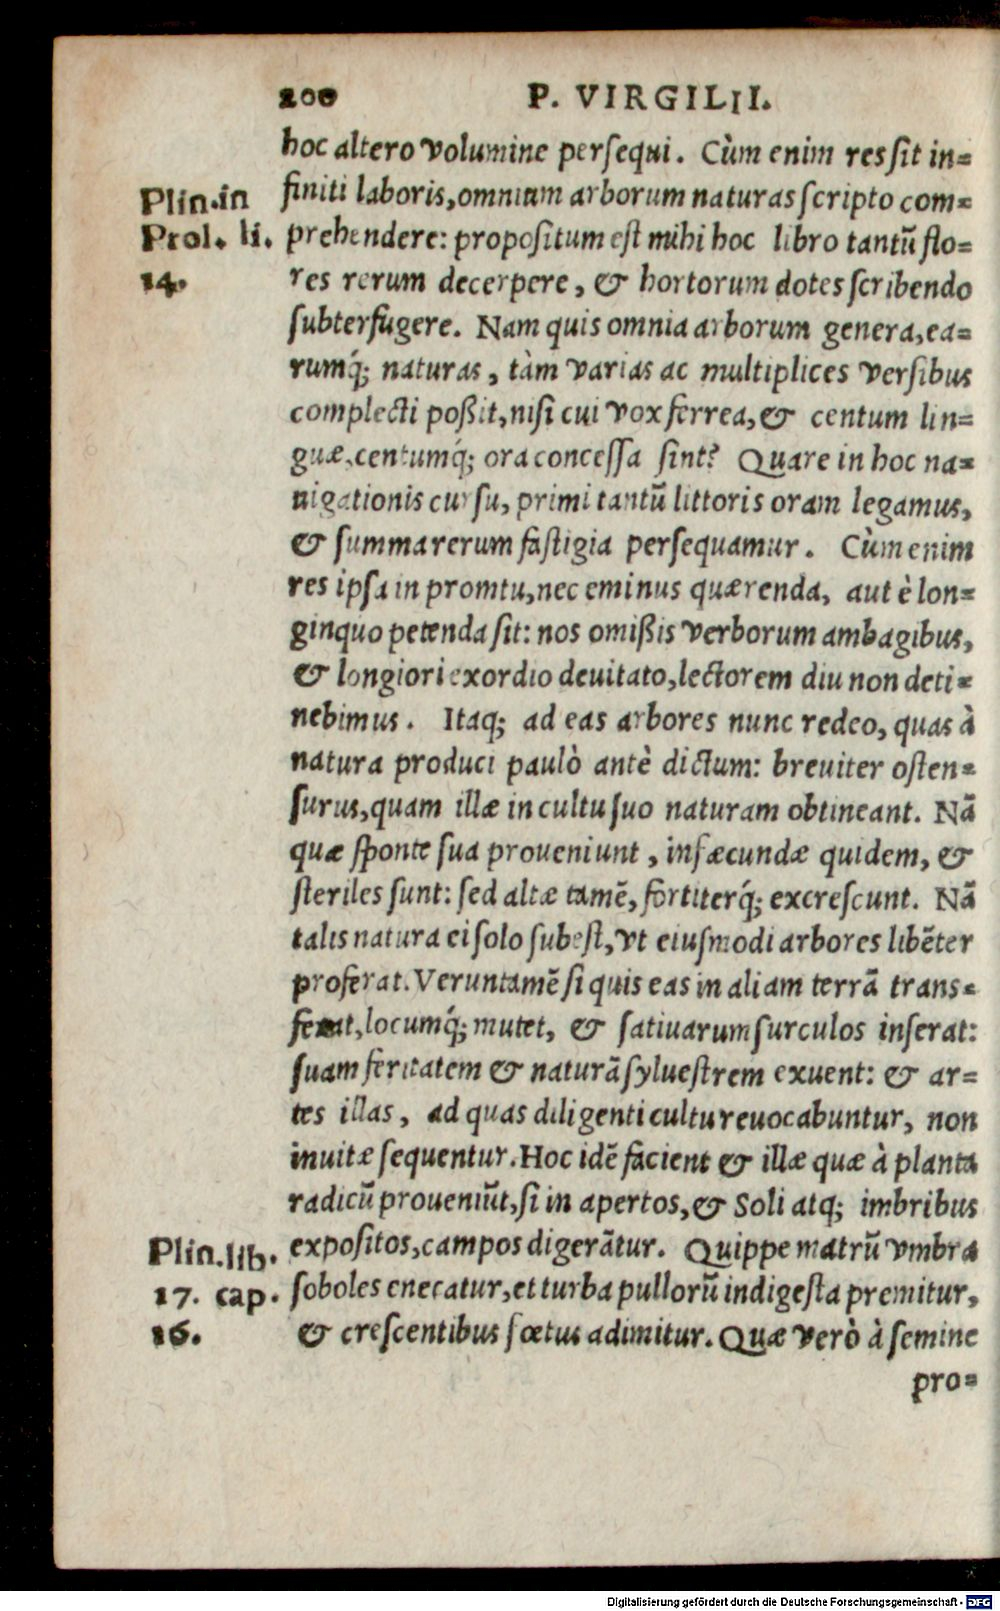 200 P. VIRGILII.
hoc altero volumine persequi. Cùm enim res sit in=
Plin.in
finiti laboris, omnium arborum naturas scripto com=
Prol. li.
prehendere: propositum est mihi hoc libro tantũ flo=
14.
res rerum decerpere, & hortorum dotes scribendo
subterfugere. Nam quis omnia arborum genera, ea=
rumq́; naturas, tàm varias ac multiplices versibus
complecti poßit, nisi cui vox ferrea, & centum lin=
guæ, centumq́; ora concessa sint? Quare in hoc na=
uigationis cursu, primi tantũ littoris oram legamus,
& summa rerum fastigia persequamur. Cùm enim
res ipsa in promtu, nec eminus quærenda, aut è lon=
ginquo petenda sit: nos omißis verborum ambagibus,
& longiori exordio deuitato, lectorem diu non deti=
nebimus. Itaq; ad eas arbores nunc redeo, quas à
natura produci paulò antè dictum: breuiter osten=
surus, quam illæ in cultu suo naturam obtineant. Nã
quæ sponte sua proueniunt, infæcundæ quidem, &
steriles sunt: sed altæ tamẽ, fortiterq́; excrescunt. Nã
talis natura ei solo subest, vt eiusmodi arbores libẽter
proferat. Veruntamẽ si quis eas in aliam terrã trans=
ferat, locumq́; mutet, & satiuarum surculos inserat:
suam feritatem & naturã syluestrem exuent: & ar=
tes illas, ad quas diligenti cultu reuocabuntur, non
inuitæ sequentur. Hoc idẽ facient & illæ quæ à planta
radicũ proueniũt, si in apertos, & Soli atq; imbribus
Plin. lib.
expositos, campos digerãtur. Quippe matrũ vmbra
17. cap.
soboles enecatur, et turba pullorũ indigesta premitur,
16.
& crescentibus fœtus adimitur. Quæ verò à semine
pro=
Digitalisierung gefördert durch die Deutsche Forschungsgemeinschaft - DFG